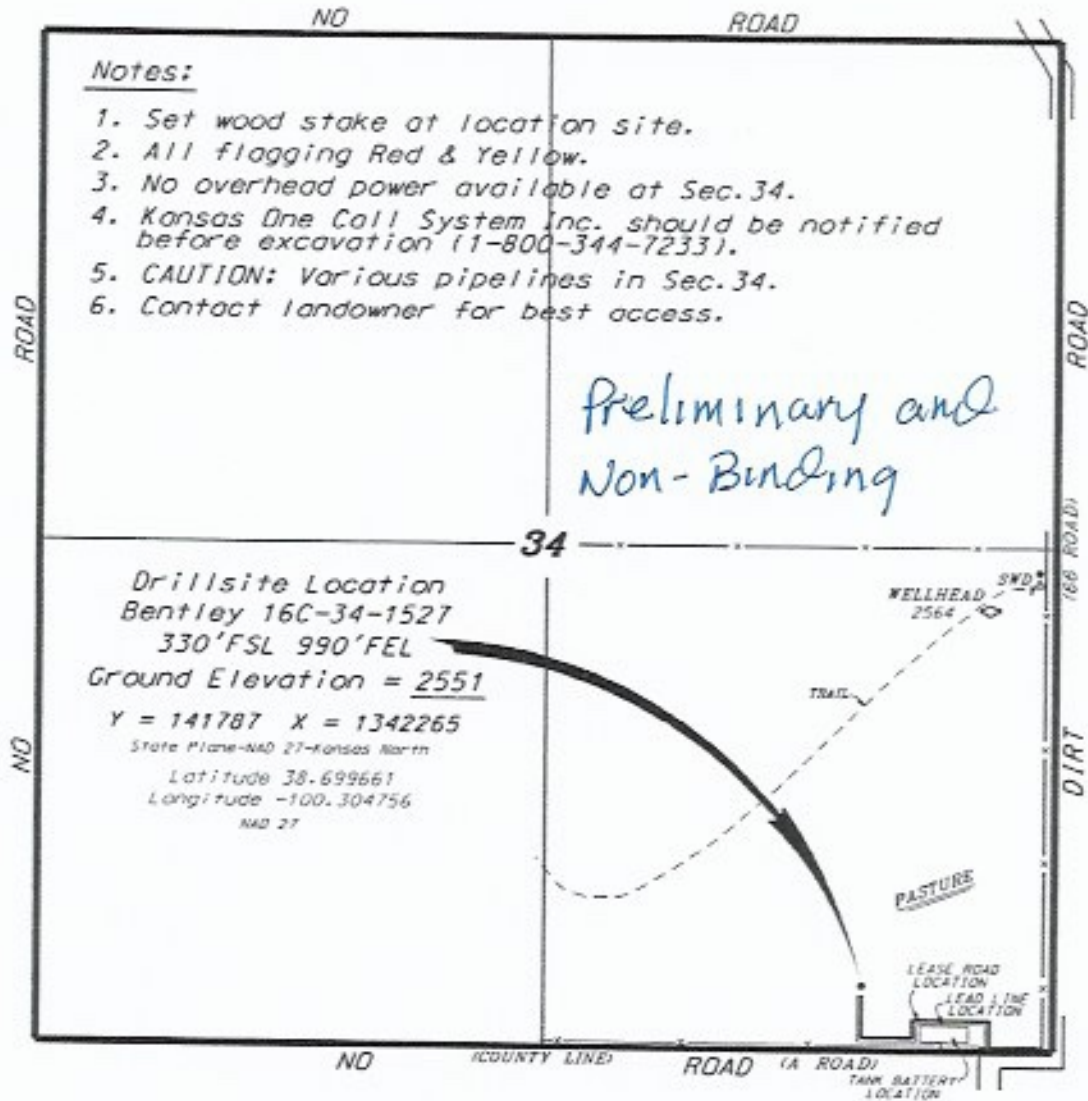 NO ROAD
Notes:
1. Set wood stake at location site.
2. All flagging Red & Yellow.
3. No overhead power available at Sec.34.
4. Kansas One Call System Inc. should be notified
before excavation (1-800-344-7233).
5. CAUTION: Various pipelines in Sec.34.
6. Contact landowner for best access.
ROAD
ROAD
Preliminary and
Non-Binding
34
(66 ROAD)
Drillsite Location
Bentley 16C-34-1527
330'FSL 990'FEL
Ground Elevation = 2551
Y = 141787 X = 1342265
State Plane-NAD 27-Kansas North
Latitude 38.699661
Longitude -100.304756
NAD 27
SWD
WELLHEAD
2564
TRAIL
NO
DIRT
PASTURE
LEASE ROAD
LOCATION
LEAD LINE
LOCATION
NO (COUNTY LINE) ROAD (A ROAD)
TANK BATTERY
LOCATION